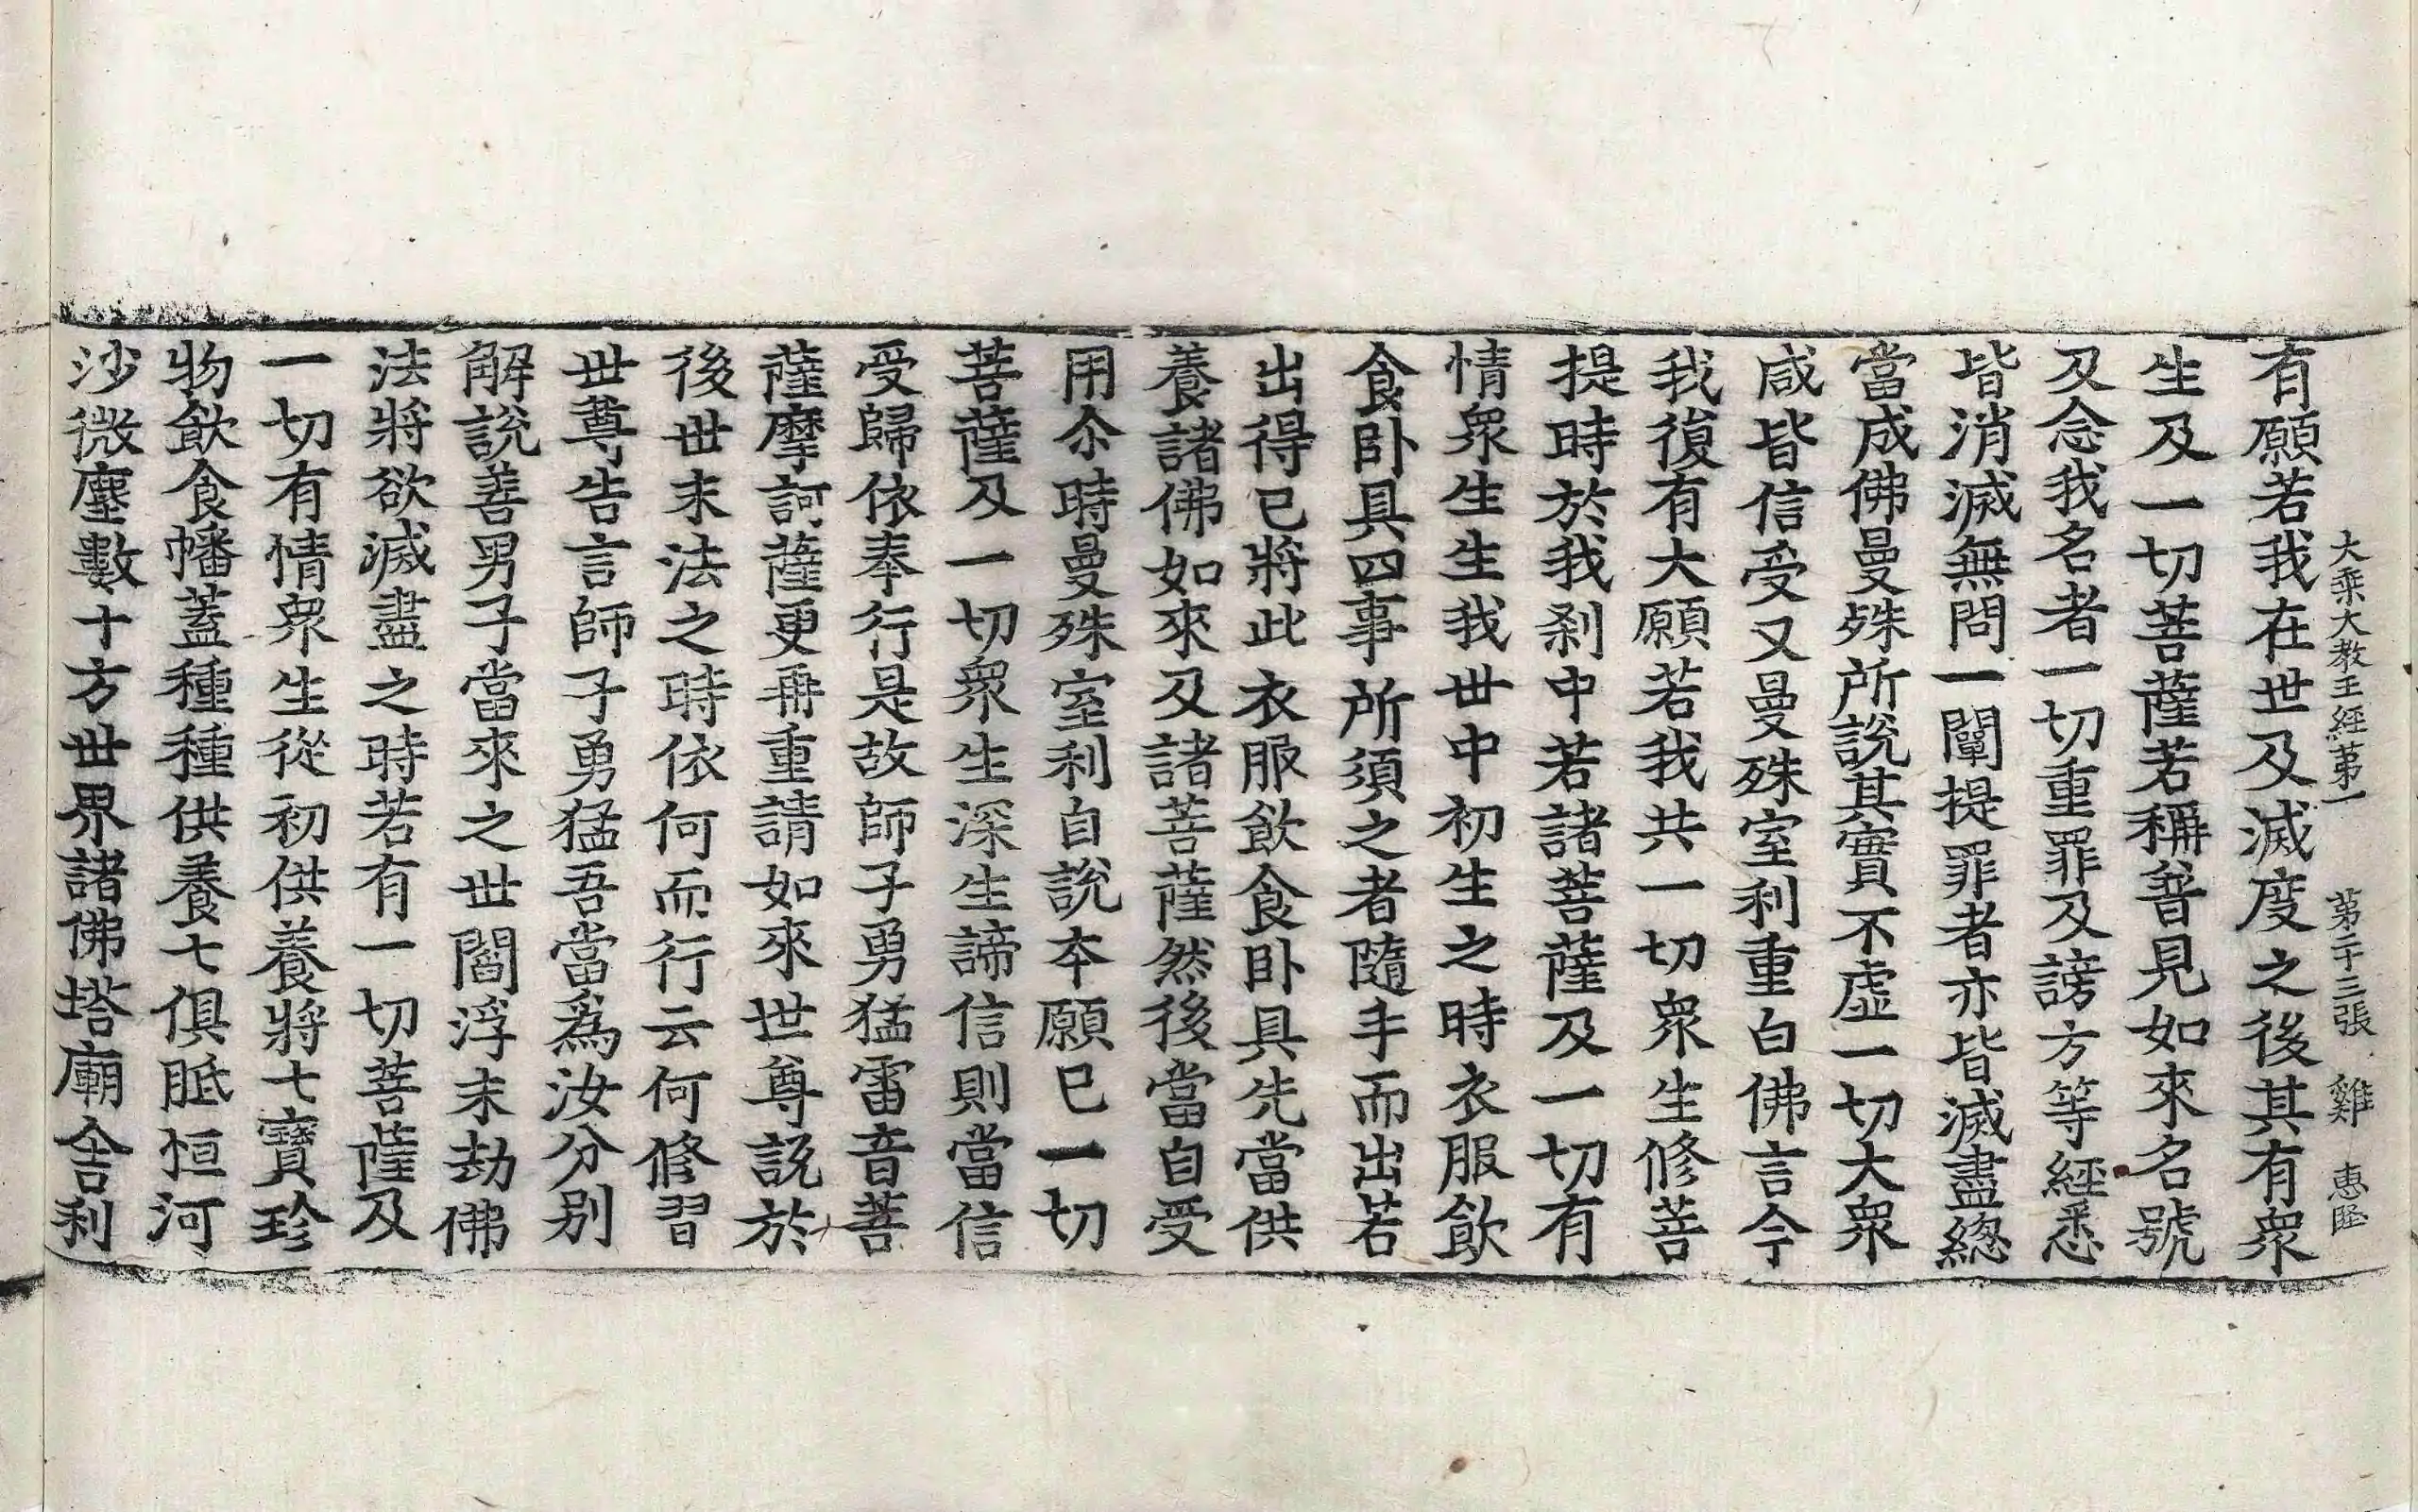 大乘大教王經苐一 第二十三張 雞 惠㫤
有願若我在世及滅度之後其有衆
生及一切菩薩若稱普見如來名號
及念我名者一切重罪及謗方等經悉
皆消滅無問一闡提罪者亦皆滅盡總
當成佛曼殊所說其實不虛一切大衆
咸皆信受又曼殊室利重白佛言今
我復有大願若我共一切衆生修菩
提時於我剎中若諸菩薩及一切有
情衆生生我世中初生之時衣服飲
食卧具四事所須之者隨手而出若
出得已將此衣服飲食卧具先當供
養諸佛如來及諸菩薩然後當自受
用尒時曼殊室利自說本願已一切
菩薩及一切衆生深生諦信則當信
受歸依奉行是故師子勇猛雷音菩
薩摩訶薩更再重請如來世尊說於
後世末法之時依何而行云何修習
世尊告言師子勇猛吾當為汝分別
解說善男子當來之世閻浮末劫佛
法將欲滅盡之時若有一切菩薩及
一切有情衆生從初供養將七寶珍
物飲食幡蓋種種供養七俱胝恒河
沙微塵數十方世界諸佛塔廟舍利